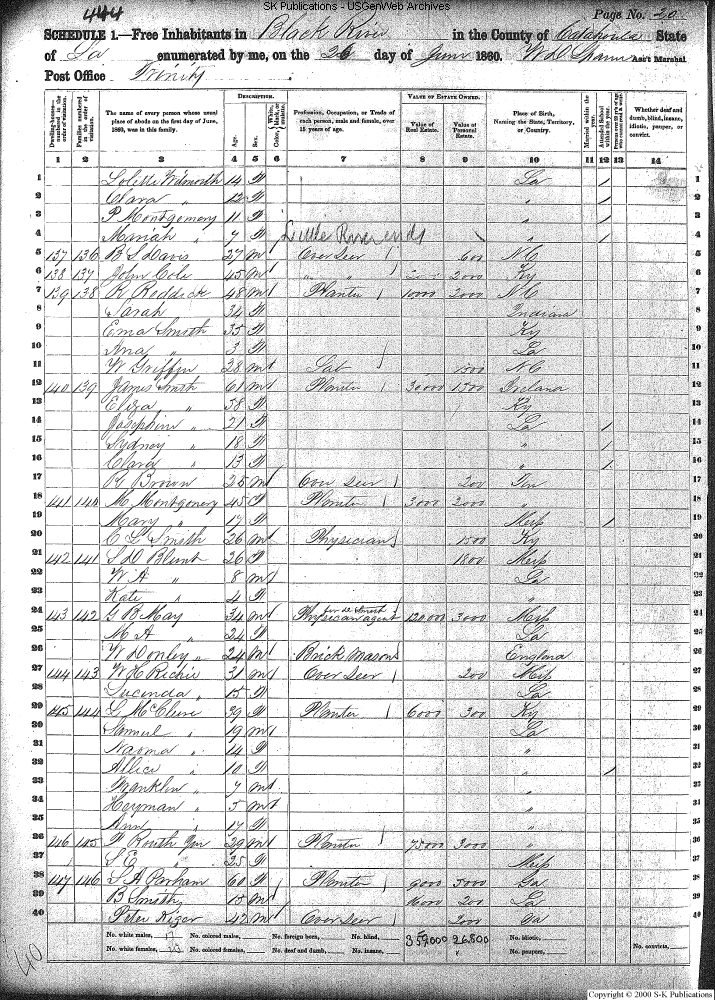 SK Publications - USGenWeb Archives
444
Page No. 20
SCHEDULE 1.—Free Inhabitants in Black River in the County of Catahoula State
of La enumerated by me, on the 26 day of June 1860. Ass't Marshal
Post Office Trinity
DESCRIPTION. VALUE OF ESTATE OWNED.
Dwelling-houses—numbered in the order of visitation. Families numbered in the order of visitation. The name of every person whose usual place of abode on the first day of June, 1860, was in this family. Age. Sex. Color, White, black, or mulatto. Profession, Occupation, or Trade of each person, male and female, over 15 years of age. Value of Real Estate. Value of Personal Estate. Place of Birth, Naming the State, Territory, or Country. Married within the year. Attended School within the year. Whether deaf and dumb, blind, insane, idiotic, pauper, or convict.
1 2 3 4 5 6 7 8 9 10 11 12 13 14
1 14 F La / 1
2 Clara " 12 F " / 2
3 P Montgomery 11 F " / 3
4 Mariah " 7 F Little River ends " / 4
5 137 136 B S Davis 27 m Over Seer 600 NC 5
6 138 137 John Cole 45 m " " 2000 Ky 6
7 139 138 R Reddick 48 m Planter 1000 2000 NC 7
8 Sarah 34 F Indiana 8
9 Ema Smith 35 F Ky 9
10 Ana " 3 F La 10
11 W Griffin 28 m NC 11
12 140 139 James Smith 61 m Planter 30000 1500 Ireland 12
13 Eliza " 58 F Ky 13
14 Josephine " 21 F La / 14
15 Sydney " 18 F " / 15
16 Clara " 13 F " / 16
17 Brown 25 m Over Seer 200 Ten 17
18 141 140 M Montgomery 45 Planter 3000 2000 " 18
19 Mary " 17 F Miss / 19
20 C L Smith 26 m Physician 1500 Ky 20
21 142 141 S D Blunt 26 F 1800 Miss 21
22 W A " 8 m La 22
23 Kate " 4 F " 23
24 143 142 G B May 34 m Physician agent 120000 3000 Miss 24
25 M A " 24 F La 25
26 W Donley " 24 m Brick Mason England 26
27 144 143 W C Richie 31 m Over Seer 200 Miss 27
28 Lucinda " 15 F La 28
29 145 144 McClure 39 F Planter 6000 300 Ky 29
30 Samuel " 19 m La 30
31 Naoma " 14 F " 31
32 Allice " 10 F " / 32
33 Franklin " 7 m " 33
34 Heyman " 5 m " 34
35 Ann " 17 F " 35
36 146 145 Routh Jr 29 m Planter 75000 3000 " 36
37 S E " 25 F Miss 37
38 147 146 S A Parham 60 F Planter 9000 5000 Ga 38
39 B Smith 15 m 16000 200 La 39
40 Peter Kiger 42 m Over Seer 2000 Ga 40
No. white males, 17 No. colored males, No. foreign born, No. blind, 359,000 26,800 No. idiotic,
No. white females, 23 No. colored females, No. deaf and dumb, No. insane, No. paupers, No. convicts,
40
Copyright © 2000 S-K Publications